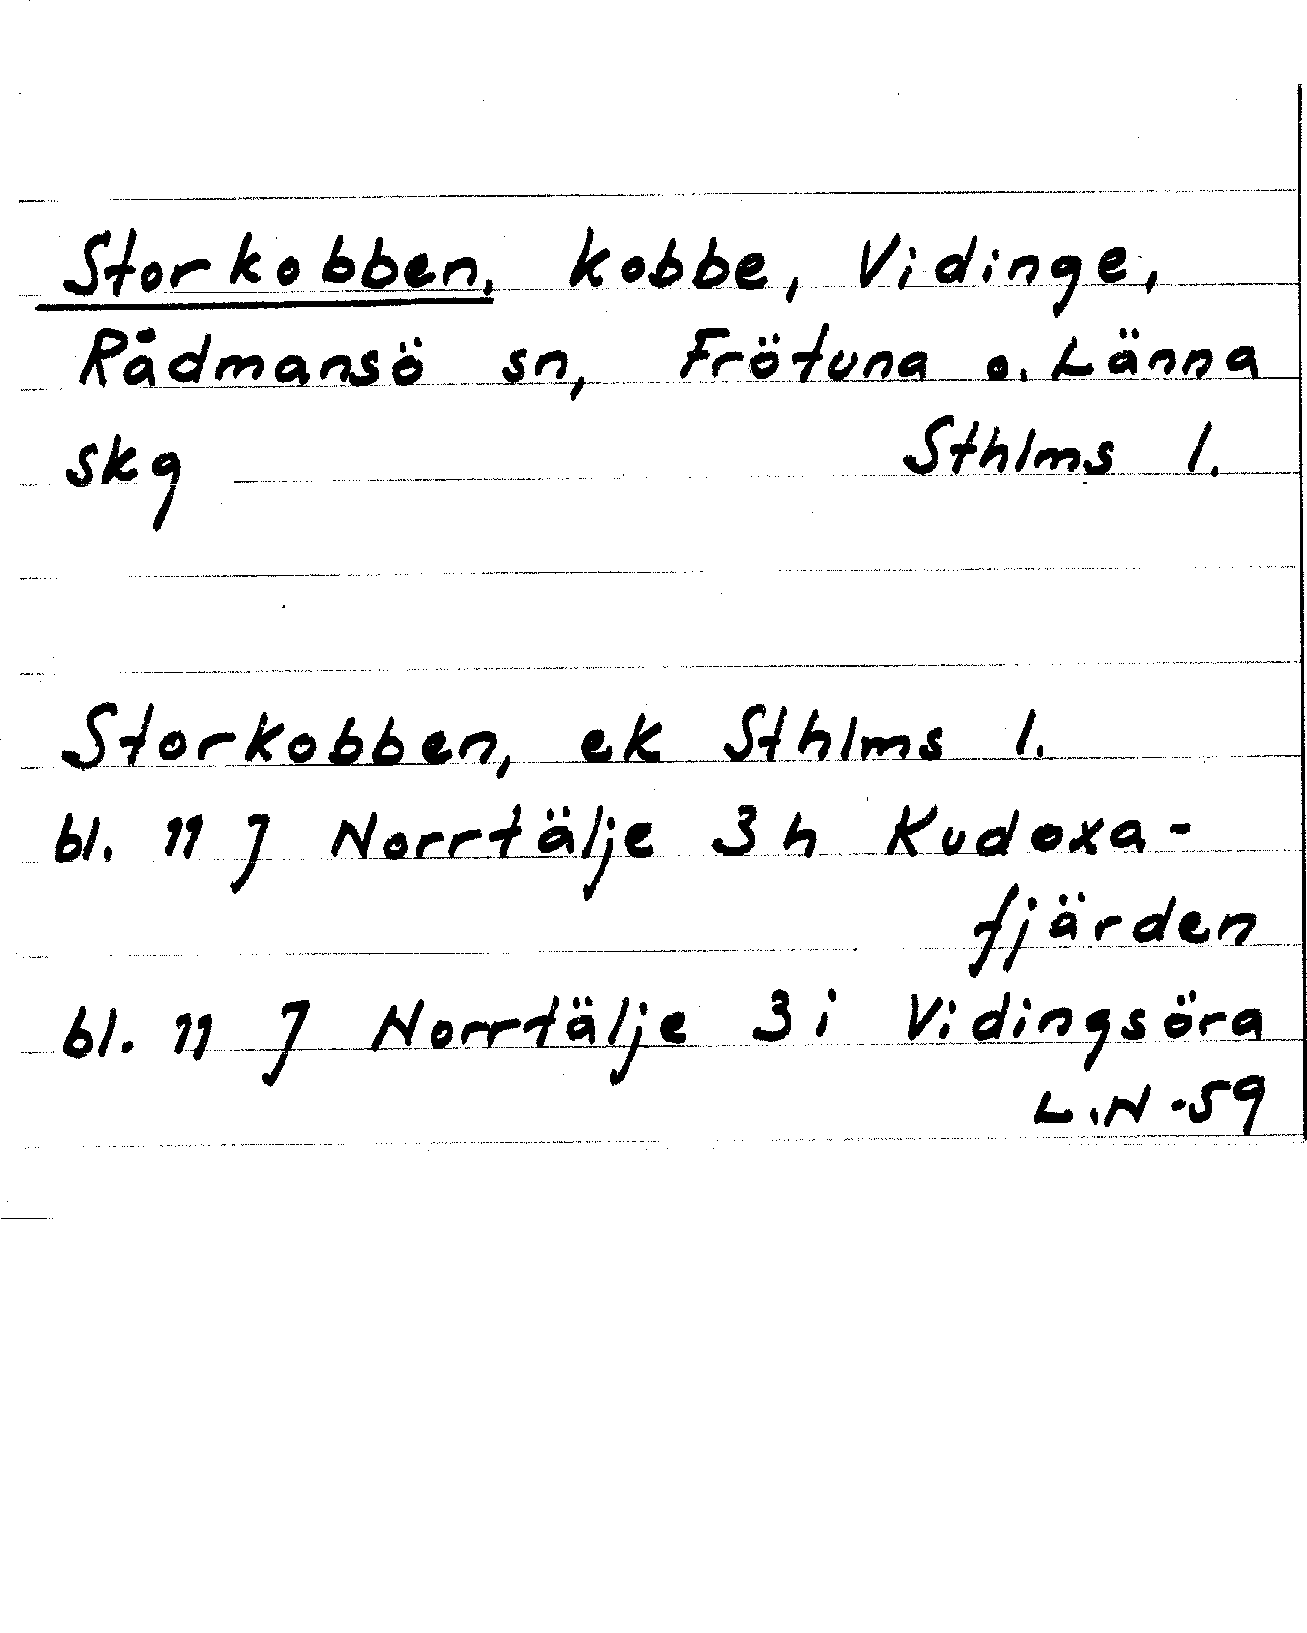 Storkobben, kobbe, Vidinge,
Rådmansö sn, Frötuna o. Länna
skg Sthlms l.
Storkobben, ek Sthlms l.
bl. 11 J Norrtälje 3 h Kudoxa-
fjärden
bl. 11 J Norrtälje 3 i Vidingsöra
L.N -59